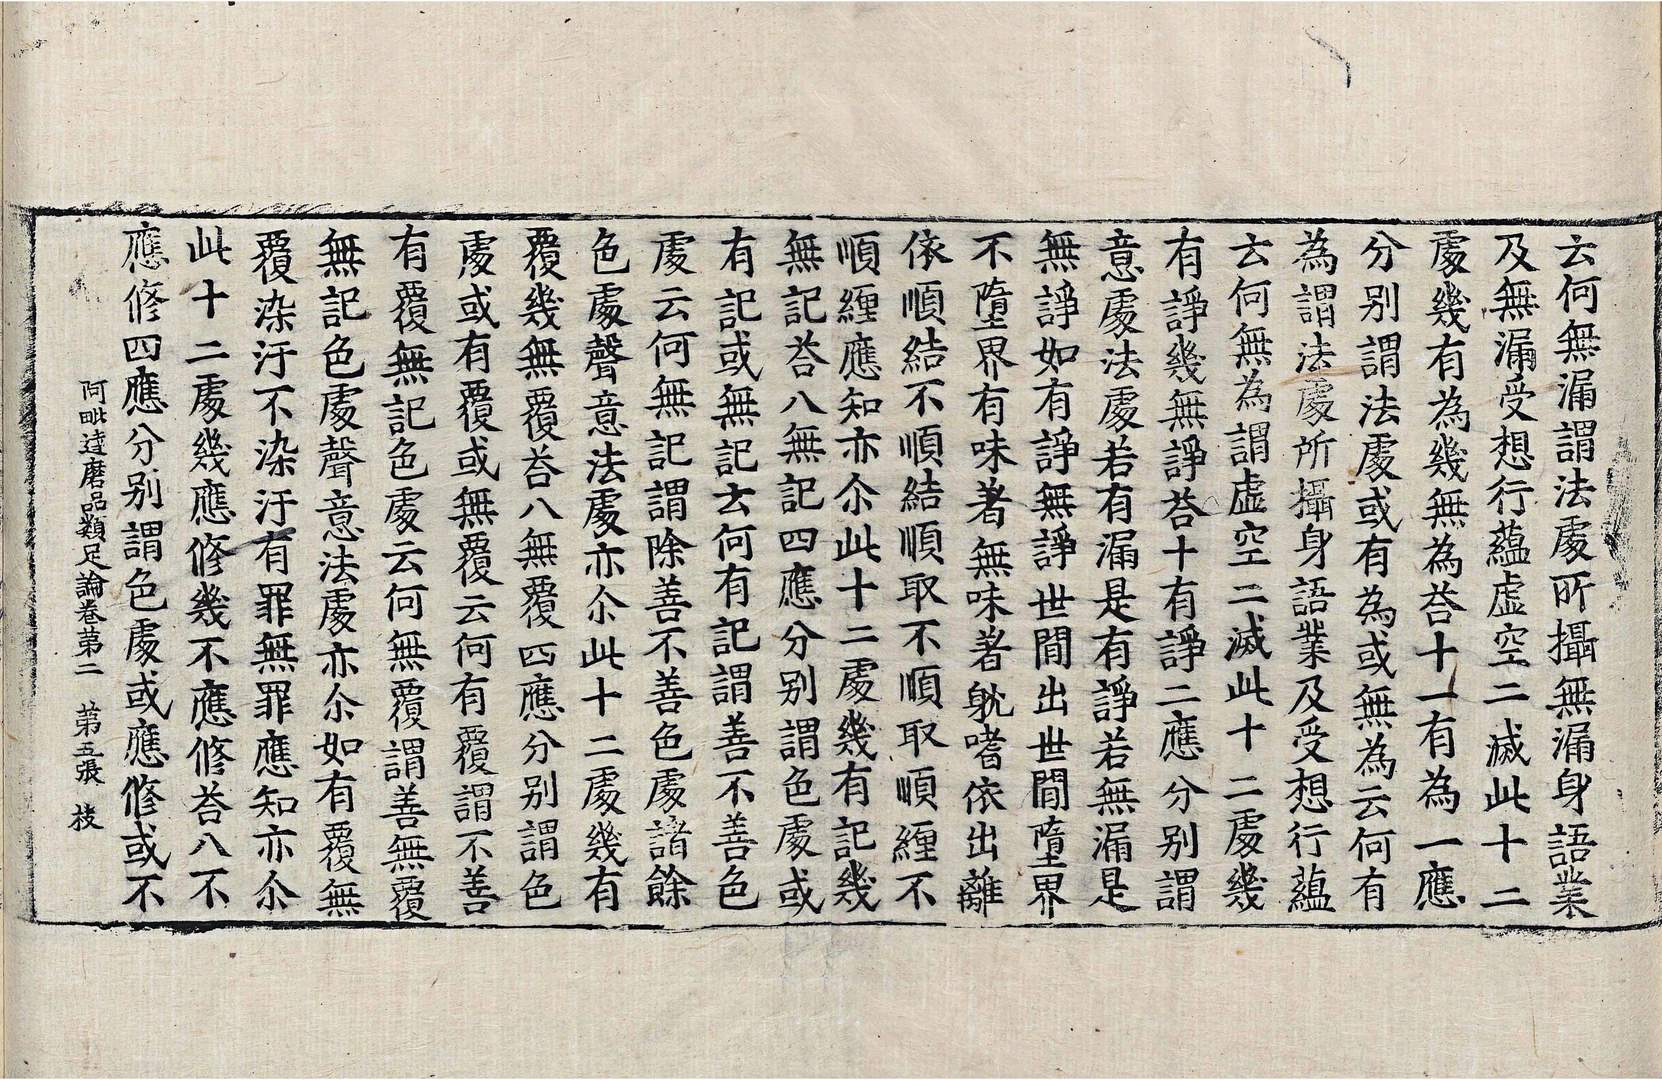 云何無漏謂法處所攝無漏身語業
及無漏受想行蘊虛空二滅此十二
處幾有為幾無為荅十一有為一應
分別謂法處或有為或無為云何有
為謂法處所攝身語業及受想行蘊
云何無為謂虛空二滅此十二處幾
有諍幾無諍荅十有諍二應分別謂
意處法處若有漏是有諍若無漏是
無諍如有諍無諍世間出世間墮界
不墮界有味著無味著躭嗜依出離
依順結不順結順取不順取順纏不
順纏應知亦尒此十二處幾有記幾
無記荅八無記四應分別謂色處或
有記或無記云何有記謂善不善色
處云何無記謂除善不善色處諸餘
色處聲意法處亦尒此十二處幾有
覆幾無覆荅八無覆四應分別謂色
處或有覆或無覆云何有覆謂不善
有覆無記色處云何無覆謂善無覆
無記色處聲意法處亦尒如有覆無
覆染汙不染汙有罪無罪應知亦尒
此十二處幾應修幾不應修荅八不
應修四應分別謂色處或應修或不
阿毗達磨品類足論卷第二　第五張　枝